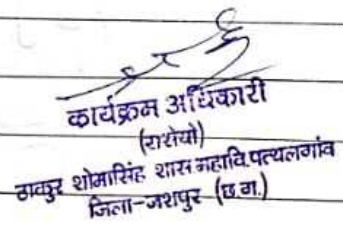 कार्यक्रम अधिकारी
(रासेयो)
ठाकुर शोभासिंह शास महावि.पत्थलगांव
जिला-जशपुर (छ.ग.)